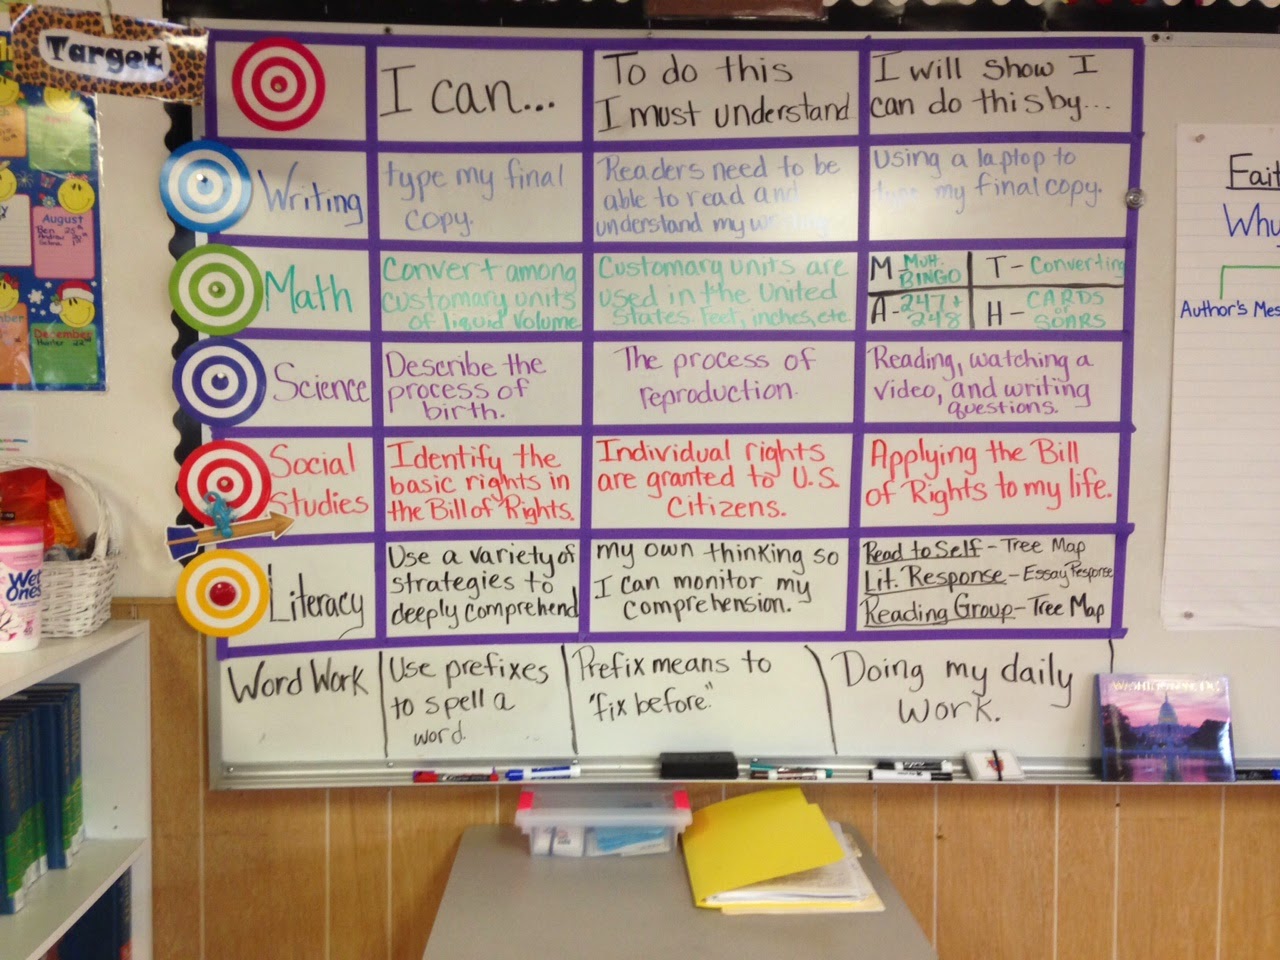 Target
I can...
To do this
I must understand
I will show I
can do this by...
Writing
type my final
copy.
Readers need to be
able to read and
understand my
Using a laptop to
my final copy.
Math
Convert among
customary units
of liquid volume
Customary units are
used in the United
States. Feet, inches, etc.
M - Mult.
BINGO
T - Converting
A - 247 +
248
H - CARDS
or
SOARS
Science
Describe the
process of
birth.
The process of
reproduction.
Reading, watching a
video, and writing
questions.
Social
Studies
Identify the
basic rights in
the Bill of Rights.
Individual rights
are granted to U.S.
Citizens.
Applying the Bill
of Rights to my life.
Literacy
Use a variety of
strategies to
deeply comprehend
my own thinking so
I can monitor my
comprehension.
Read to Self - Tree Map
Lit. Response - Essay Response
Reading Group - Tree Map
Word Work
Use prefixes
to spell a
word.
Prefix means to
"fix before."
Doing my daily
work.
August
Ben 25th
December
Hunter
Wet
Ones
Why
Author's Mes
WASHINGTON, DC